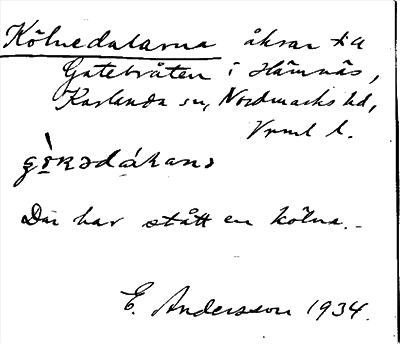 Kölnedalarna åkrar till
Gatebråten i Hämnäs,
Karlanda sn, Nordmarks hd,
Vrml l.
Där har stått en kölna.-
E. Andersson 1934.